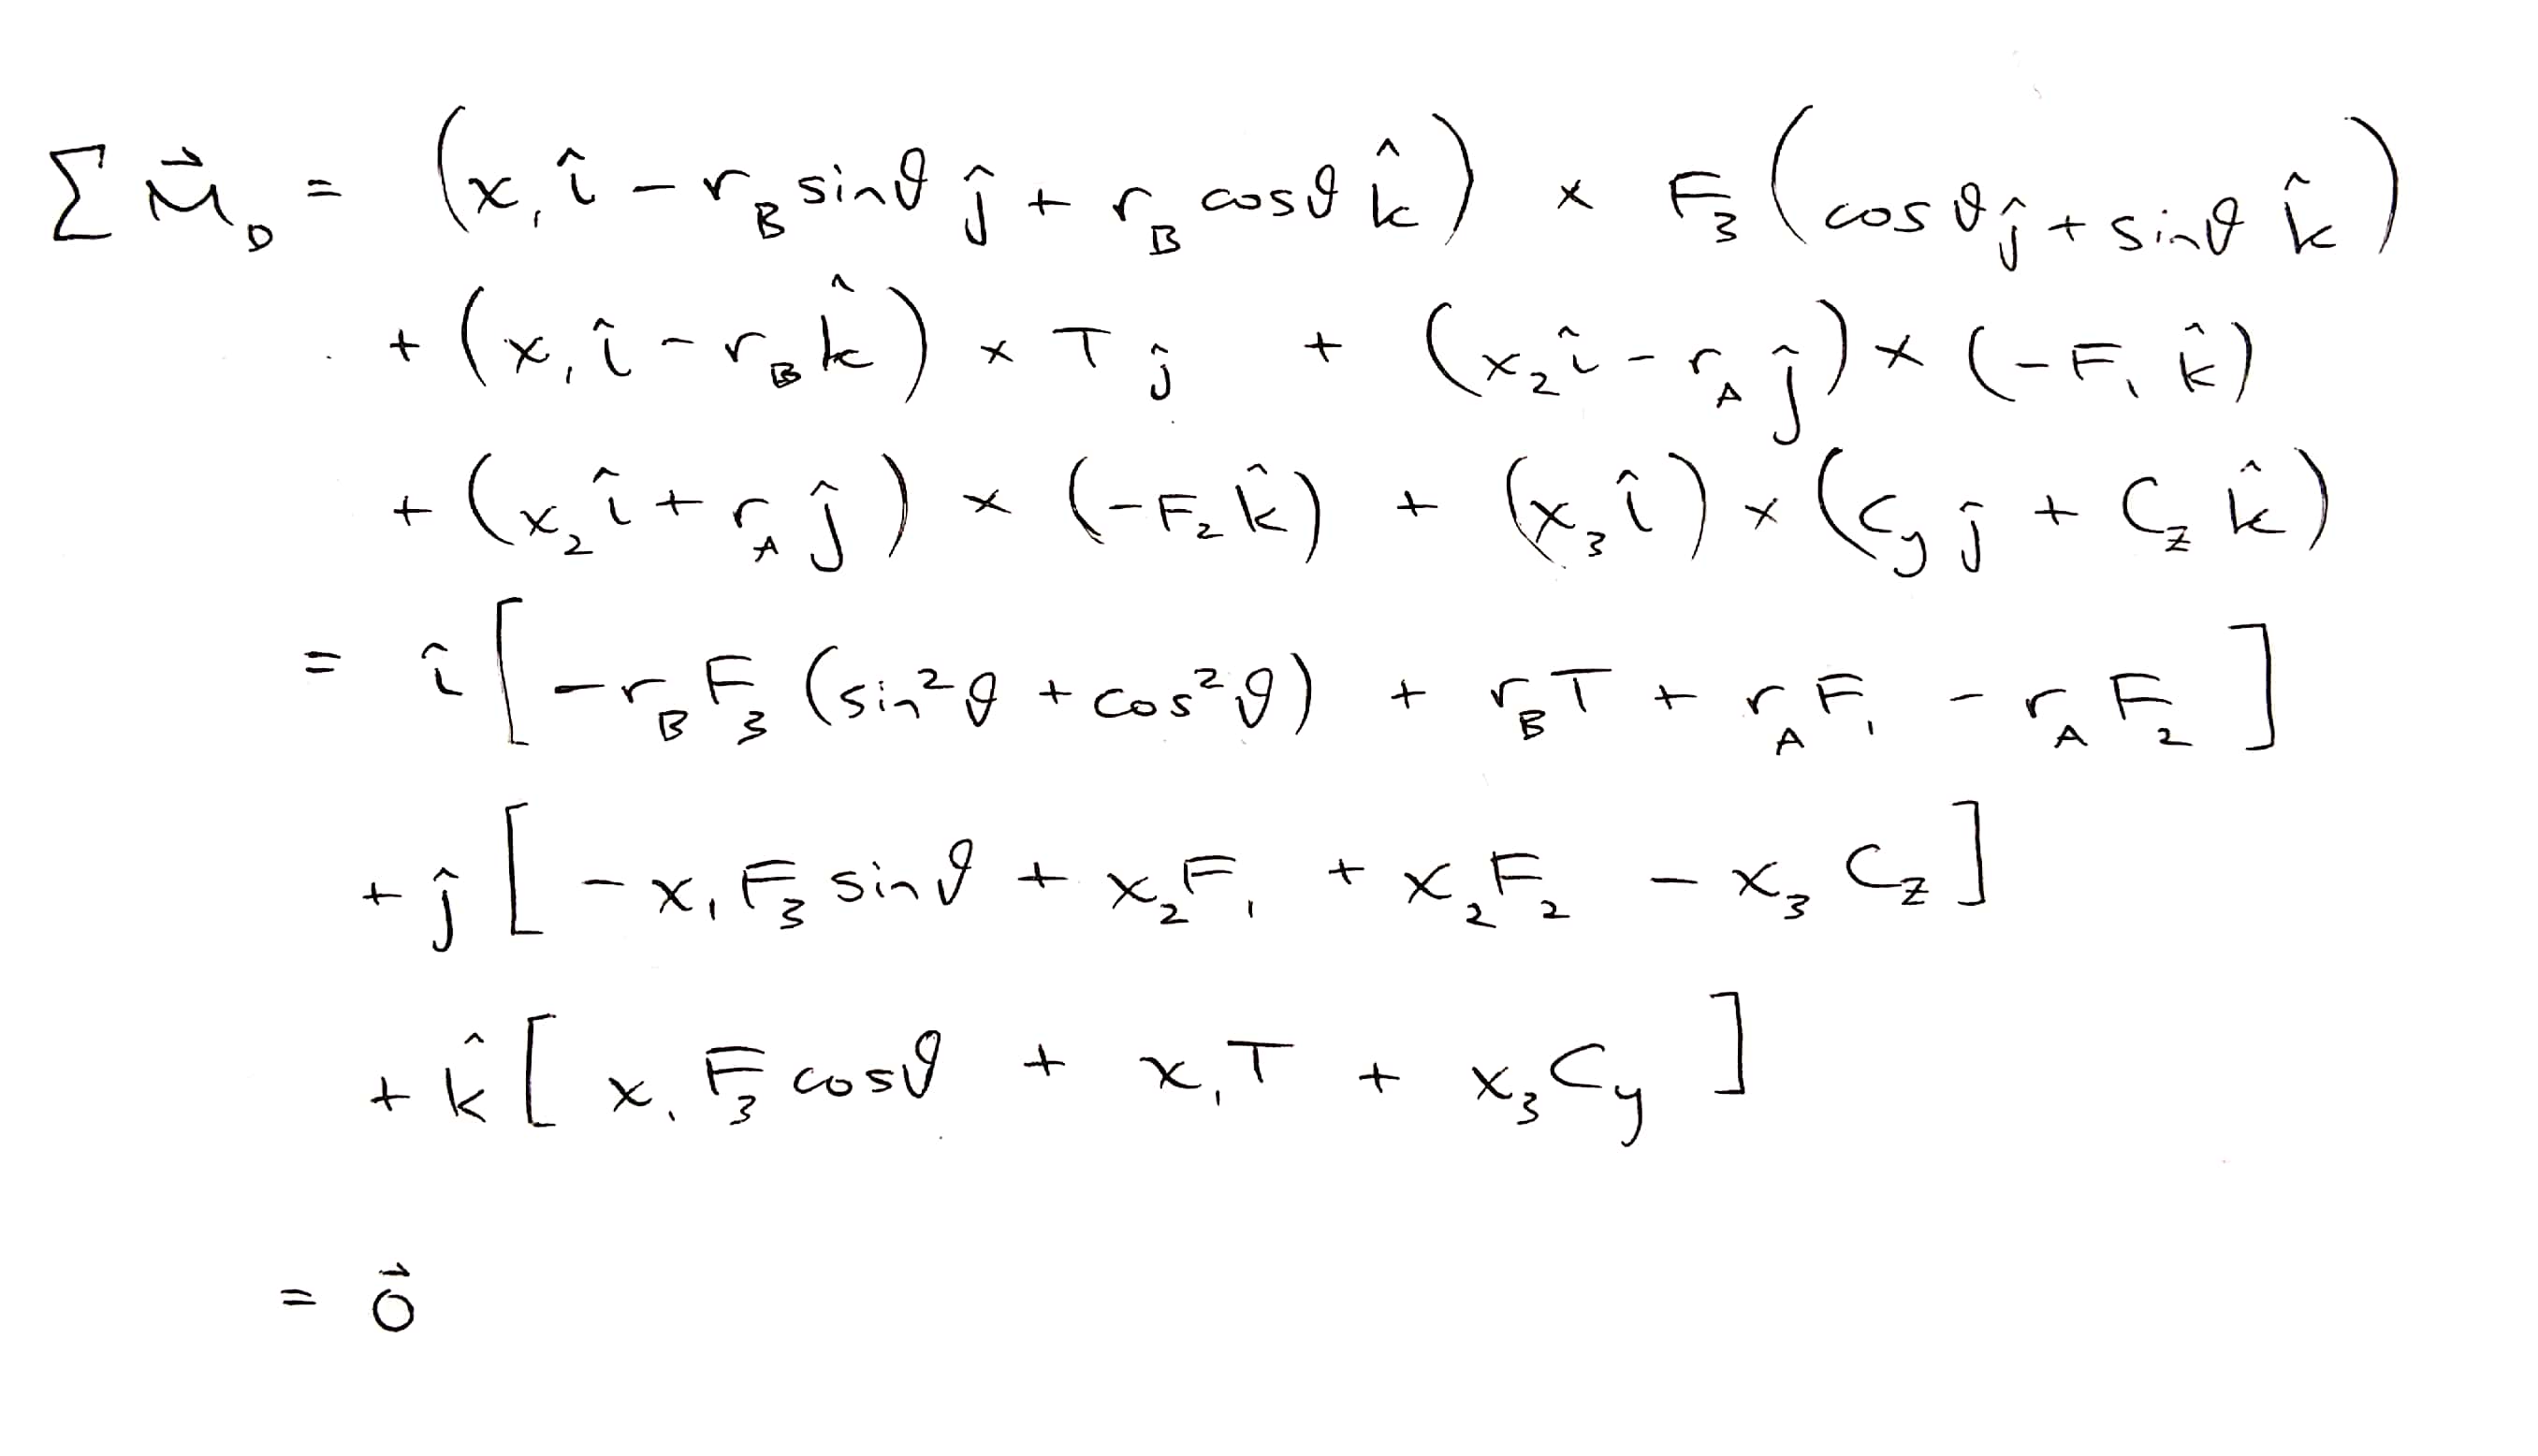 Σ M⃗_D = (x₁ î − r_B sinϑ ĵ + r_B cosϑ k̂) × F₃ (cosϑ ĵ + sinϑ k̂)
+ (x₁ î − r_B k̂) × T ĵ + (x₂ î − r_A ĵ) × (−F₁ k̂)
+ (x₂ î + r_A ĵ) × (−F₂ k̂) + (x₃ î) × (C_y ĵ + C_z k̂)
= î [−r_B F₃ (sin²ϑ + cos²ϑ) + r_B T + r_A F₁ − r_A F₂]
+ ĵ [−x₁ F₃ sinϑ + x₂ F₁ + x₂ F₂ − x₃ C_z]
+ k̂ [x₁ F₃ cosϑ + x₁ T + x₃ C_y]
= 0⃗